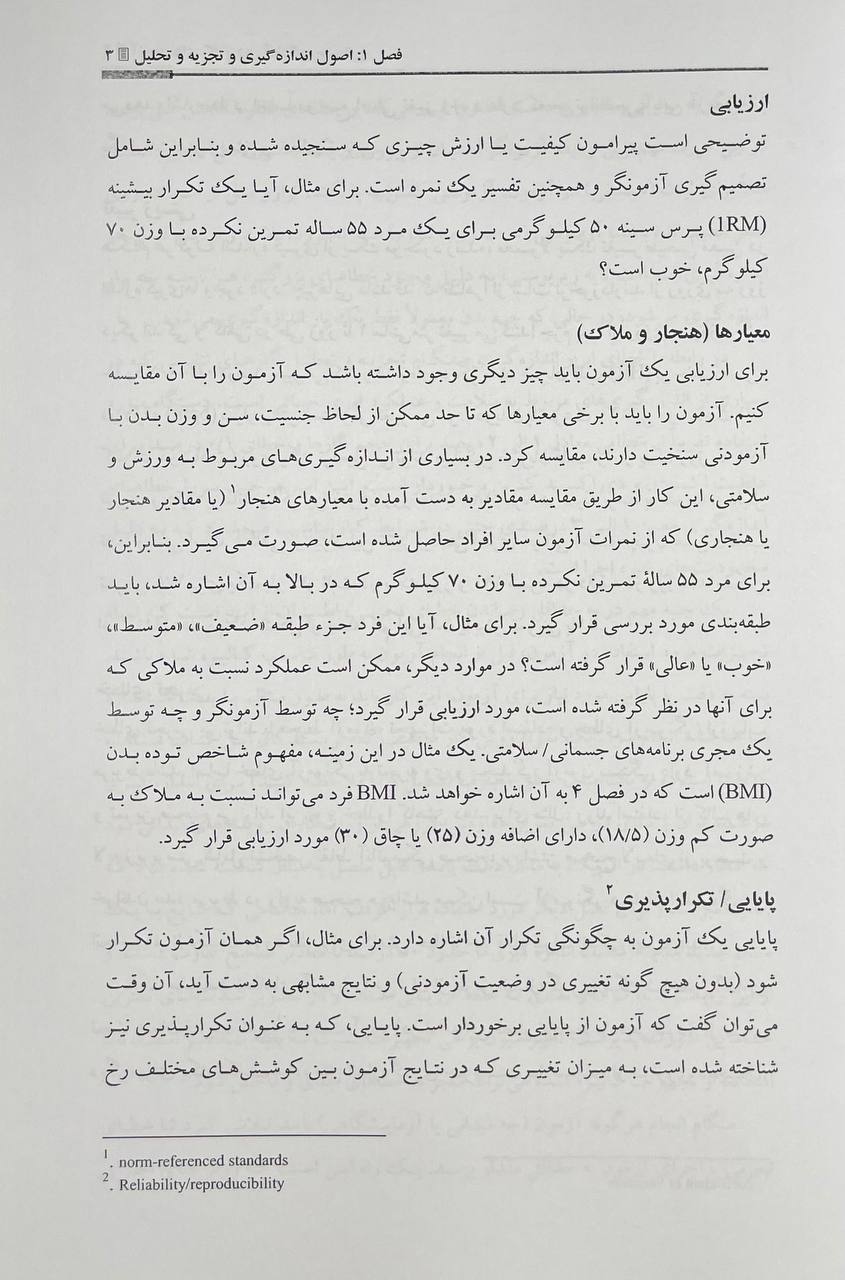 فصل ۱: اصول اندازه‌گیری و تجزیه و تحلیل ۳
ارزیابی
توضیحی است پیرامون کیفیت یا ارزش چیزی که سنجیده شده و بنابراین شامل
تصمیم‌گیری آزمونگر و همچنین تفسیر یک نمره است. برای مثال، آیا یک تکرار بیشینه
(1RM) پرس سینه ۵۰ کیلوگرمی برای یک مرد ۵۵ ساله تمرین نکرده با وزن ۷۰
کیلوگرم، خوب است؟
معیارها (هنجار و ملاک)
برای ارزیابی یک آزمون باید چیز دیگری وجود داشته باشد که آزمون را با آن مقایسه
کنیم. آزمون را باید با برخی معیارها که تا حد ممکن از لحاظ جنسیت، سن و وزن بدن با
آزمودنی سنخیت دارند، مقایسه کرد. در بسیاری از اندازه‌گیری‌های مربوط به ورزش و
سلامتی، این کار از طریق مقایسه مقادیر به دست آمده با معیارهای هنجار۱ (یا مقادیر هنجار
یا هنجاری) که از نمرات آزمون سایر افراد حاصل شده است، صورت می‌گیرد. بنابراین،
برای مرد ۵۵ سالۀ تمرین نکرده با وزن ۷۰ کیلوگرم که در بالا به آن اشاره شد، باید
طبقه‌بندی مورد بررسی قرار گیرد. برای مثال، آیا این فرد جزء طبقه «ضعیف»، «متوسط»،
«خوب» یا «عالی» قرار گرفته است؟ در موارد دیگر، ممکن است عملکرد نسبت به ملاکی که
برای آنها در نظر گرفته شده است، مورد ارزیابی قرار گیرد؛ چه توسط آزمونگر و چه توسط
یک مجری برنامه‌های جسمانی/ سلامتی. یک مثال در این زمینه، مفهوم شاخص توده بدن
(BMI) است که در فصل ۴ به آن اشاره خواهد شد. BMI فرد می‌تواند نسبت به ملاک به
صورت کم وزن (۱۸/۵)، دارای اضافه وزن (۲۵) یا چاق (۳۰) مورد ارزیابی قرار گیرد.
پایایی/ تکرارپذیری۲
پایایی یک آزمون به چگونگی تکرار آن اشاره دارد. برای مثال، اگر همان آزمون تکرار
شود (بدون هیچ گونه تغییری در وضعیت آزمودنی) و نتایج مشابهی به دست آید، آن وقت
می‌توان گفت که آزمون از پایایی برخوردار است. پایایی، که به عنوان تکرارپذیری نیز
شناخته شده است، به میزان تغییری که در نتایج آزمون بین کوشش‌های مختلف رخ
1. norm-referenced standards
2. Reliability/reproducibility